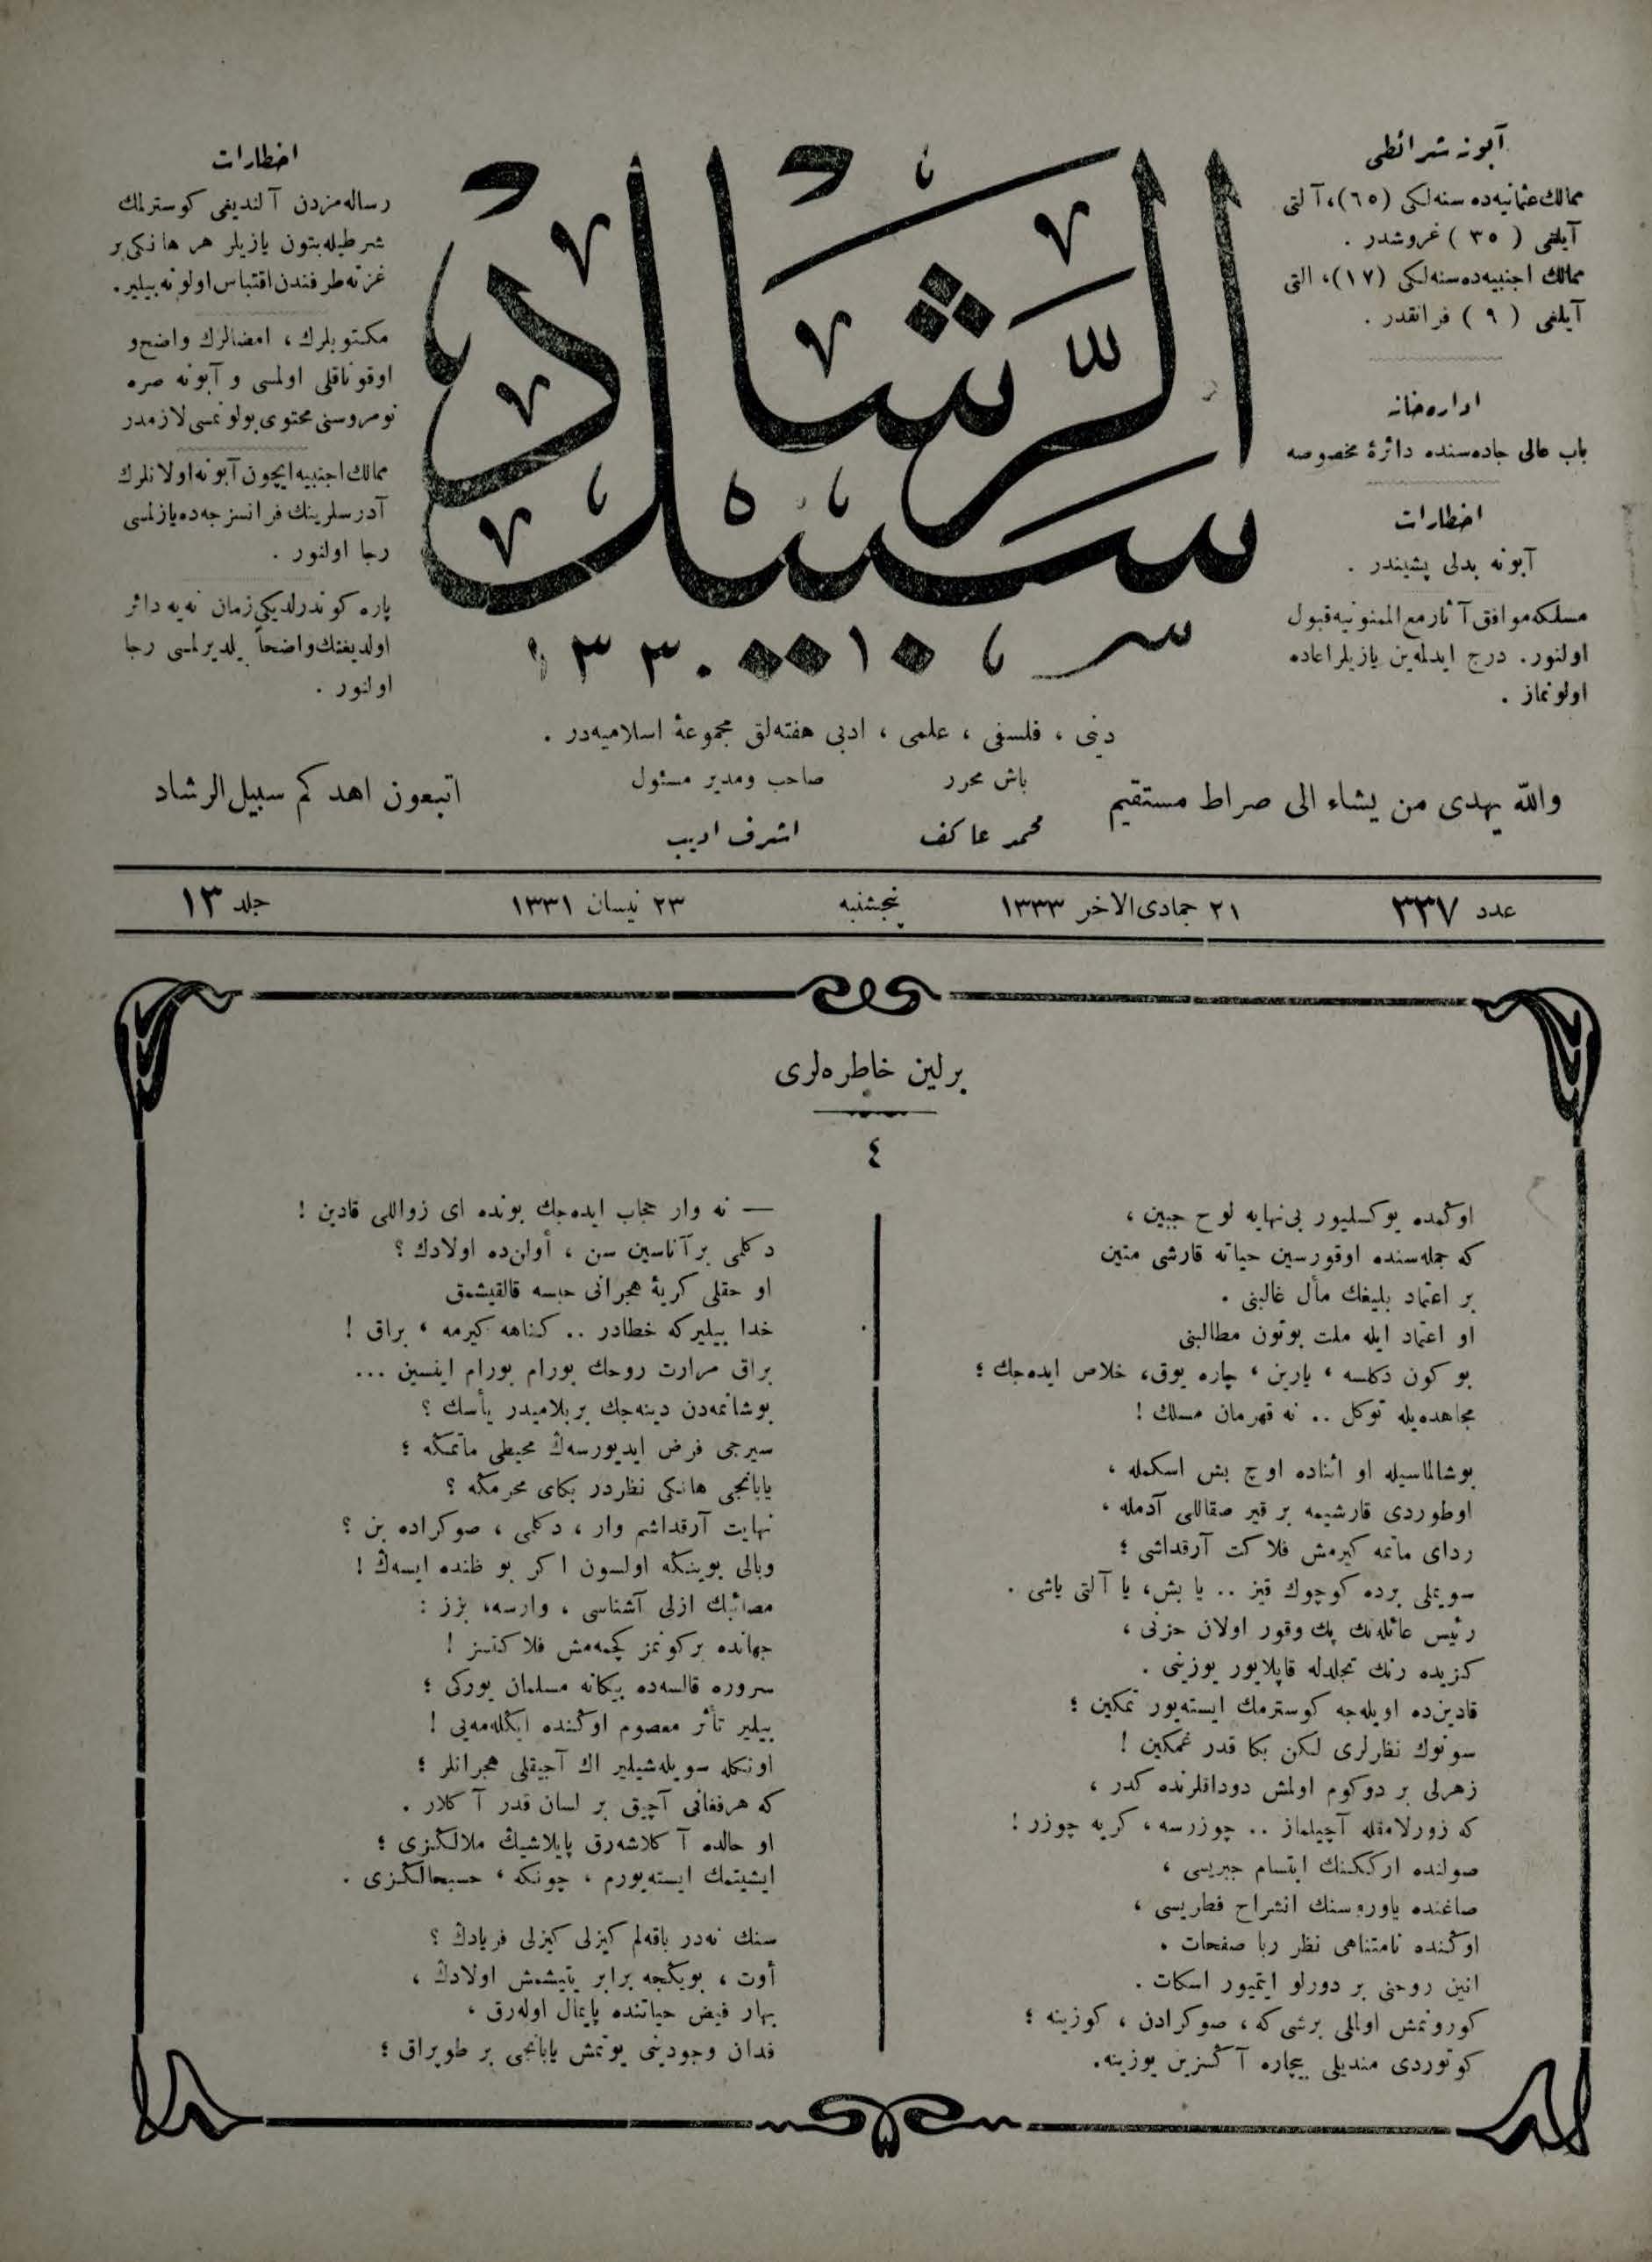 آبونه شرائطی
ممالك عثمانیه‌ده سنه‌لكی (٦٥)، آلتی
آیلغی ( ٣٥ ) غروشدر .
ممالك اجنبیه‌ده سنه‌لكی (١٧)، التی
آیلغی ( ٩ ) فرانقدر .
اداره‌خانه
باب عالی جاده‌سنده دائرهٔ مخصوصه
اخطارات
آبونه بدلی پشیندر .
مسلكه موافق آثار مع الممنونیه قبول
اولنور. درج ایدلمه‌ین یازیلر اعاده
اولونماز .
سبیل الرشاد
سر ١٣٣٠
اخطارات
رساله‌مزدن آلندیغی كوسترلمك
شرطیله بتون یازیلر هر هانكی بر
غزته طرفندن اقتباس اولونه‌بیلیر.
مكتوبلرك ، امضالرك واضح و
اوقوناقلی اولمسی و آبونه صره
نومروسنی محتوی بولونمسی لازمدر
ممالك اجنبیه ایچون آبونه اولانلرك
آدرسلرینك فرانسزجه‌ده یازلمسی
رجا اولنور .
پاره كوندرلدیكی زمان نه‌یه دائر
اولدیغنك واضحاً بیلدیرلمسی رجا
اولنور .
دینی ، فلسفی ، علمی ، ادبی هفته‌لق مجموعهٔ اسلامیه‌در .
والله یهدی من یشاء الی صراط مستقیم
باش محرر
محمد عاكف
صاحب ومدیر مسئول
اشرف ادیب
اتبعون اهدكم سبیل الرشاد
عدد ٣٣٧
٢١ جمادی الاخر ١٣٣٣
پنجشنبه
٢٣ نیسان ١٣٣١
جلد ١٣
برلین خاطره‌لری
٤
اوڭمده یوكسلیور بی‌نهایه لوح جبین ،
كه جمله‌سنده اوقورسین حیاته قارشی متین
بر اعتماد بلیغك مآل غالبنی .
او اعتماد ایله ملت بوتون مطالبنی
بو كون دكلسه ، یارین ، چاره یوق، خلاص ایده‌جك ؛
مجاهده‌یله توكل .. نه قهرمان مسلك !
بوشالماسیله او اثناده اوچ بش اسكمله ،
اوطوردی قارشیمه بر قیر صقاللی آدمله ،
ردای ماتمه كیرمش فلاكت آرقداشی ؛
سویملی برده كوچوك قیز .. یا بش، یا آلتی یاشی .
رئیس عائله‌نك پك وقور اولان حزنی ،
كزیده رنك تجلدله قاپلایور یوزینی .
قادین‌ده اویله‌جه كوسترمك ایسته‌یور تمكین ؛
سونوك نظرلری لكن بكا قدر غمكین !
زهرلی بر دوكوم اولمش دوداقلرنده كدر ،
كه زورلامقله آچیلماز .. چوزرسه ، كریه چوزر !
صولنده ارككنك ابتسام جبریسی ،
صاغنده یاوروسنك انشراح فطریسی ،
اوڭنده نامتناهی نظر ربا صفحات .
انین روحنی بر دورلو ایتمیور اسكات .
كورونمش اوللی برشی كه ، صوكرادن ، كوزینه ؛
كوتوردی مندیلی بیچاره آڭسزین یوزینه.
— نه وار حجاب ایده‌جك بونده ای زواللی قادین !
دكلمی بر آناسین سن ، أولن‌ده اولادك ؟
او حقلی كریهٔ هجرانی حبسه قالقیشمق
خدا بیلیركه خطادر .. كناهه كیرمه ، براق !
براق مرارت روحك بورام بورام اینسین ...
بوشانمه‌دن دینه‌جك بربلامیدر یأسك ؟
سیرجی فرض ایدیورسه‌ڭ محیطی ماتمڭه ؛
یابانجی هانكی نظردر بكای محرمڭه ؟
نهایت آرقداشم وار ، دكلمی ، صوكراده بن ؟
وبالی بوینڭه اولسون اكر بو ظنده ایسه‌ڭ !
مصائبك ازلی آشناسی ، وارسه، بزز :
جهانده بركونمز كچمه‌مش فلاكتسز !
سروره قالسه‌ده بیكانه مسلمان یوركی ؛
بیلیر تأثر معصوم اوڭنده ایڭله‌مه‌یی !
اونكله سویله‌شیلیر اك آجیقلی هجرانلر ؛
كه هر فغانی آچیق بر لسان قدر آكلار .
او حالده آكلاشه‌رق پایلاشیڭ ملالڭزی ؛
ایشیتمك ایسته‌یورم ، چونكه ، حسبحالڭزی .
سنك نه‌در باقه‌لم كیزلی كیزلی فریادڭ ؟
أوت ، بویڭجه برابر یتیشمش اولادڭ ،
بهار فیض حیاتنده پایمال اوله‌رق ،
فدان وجودینی یوتمش یابانجی بر طوپراق ؛